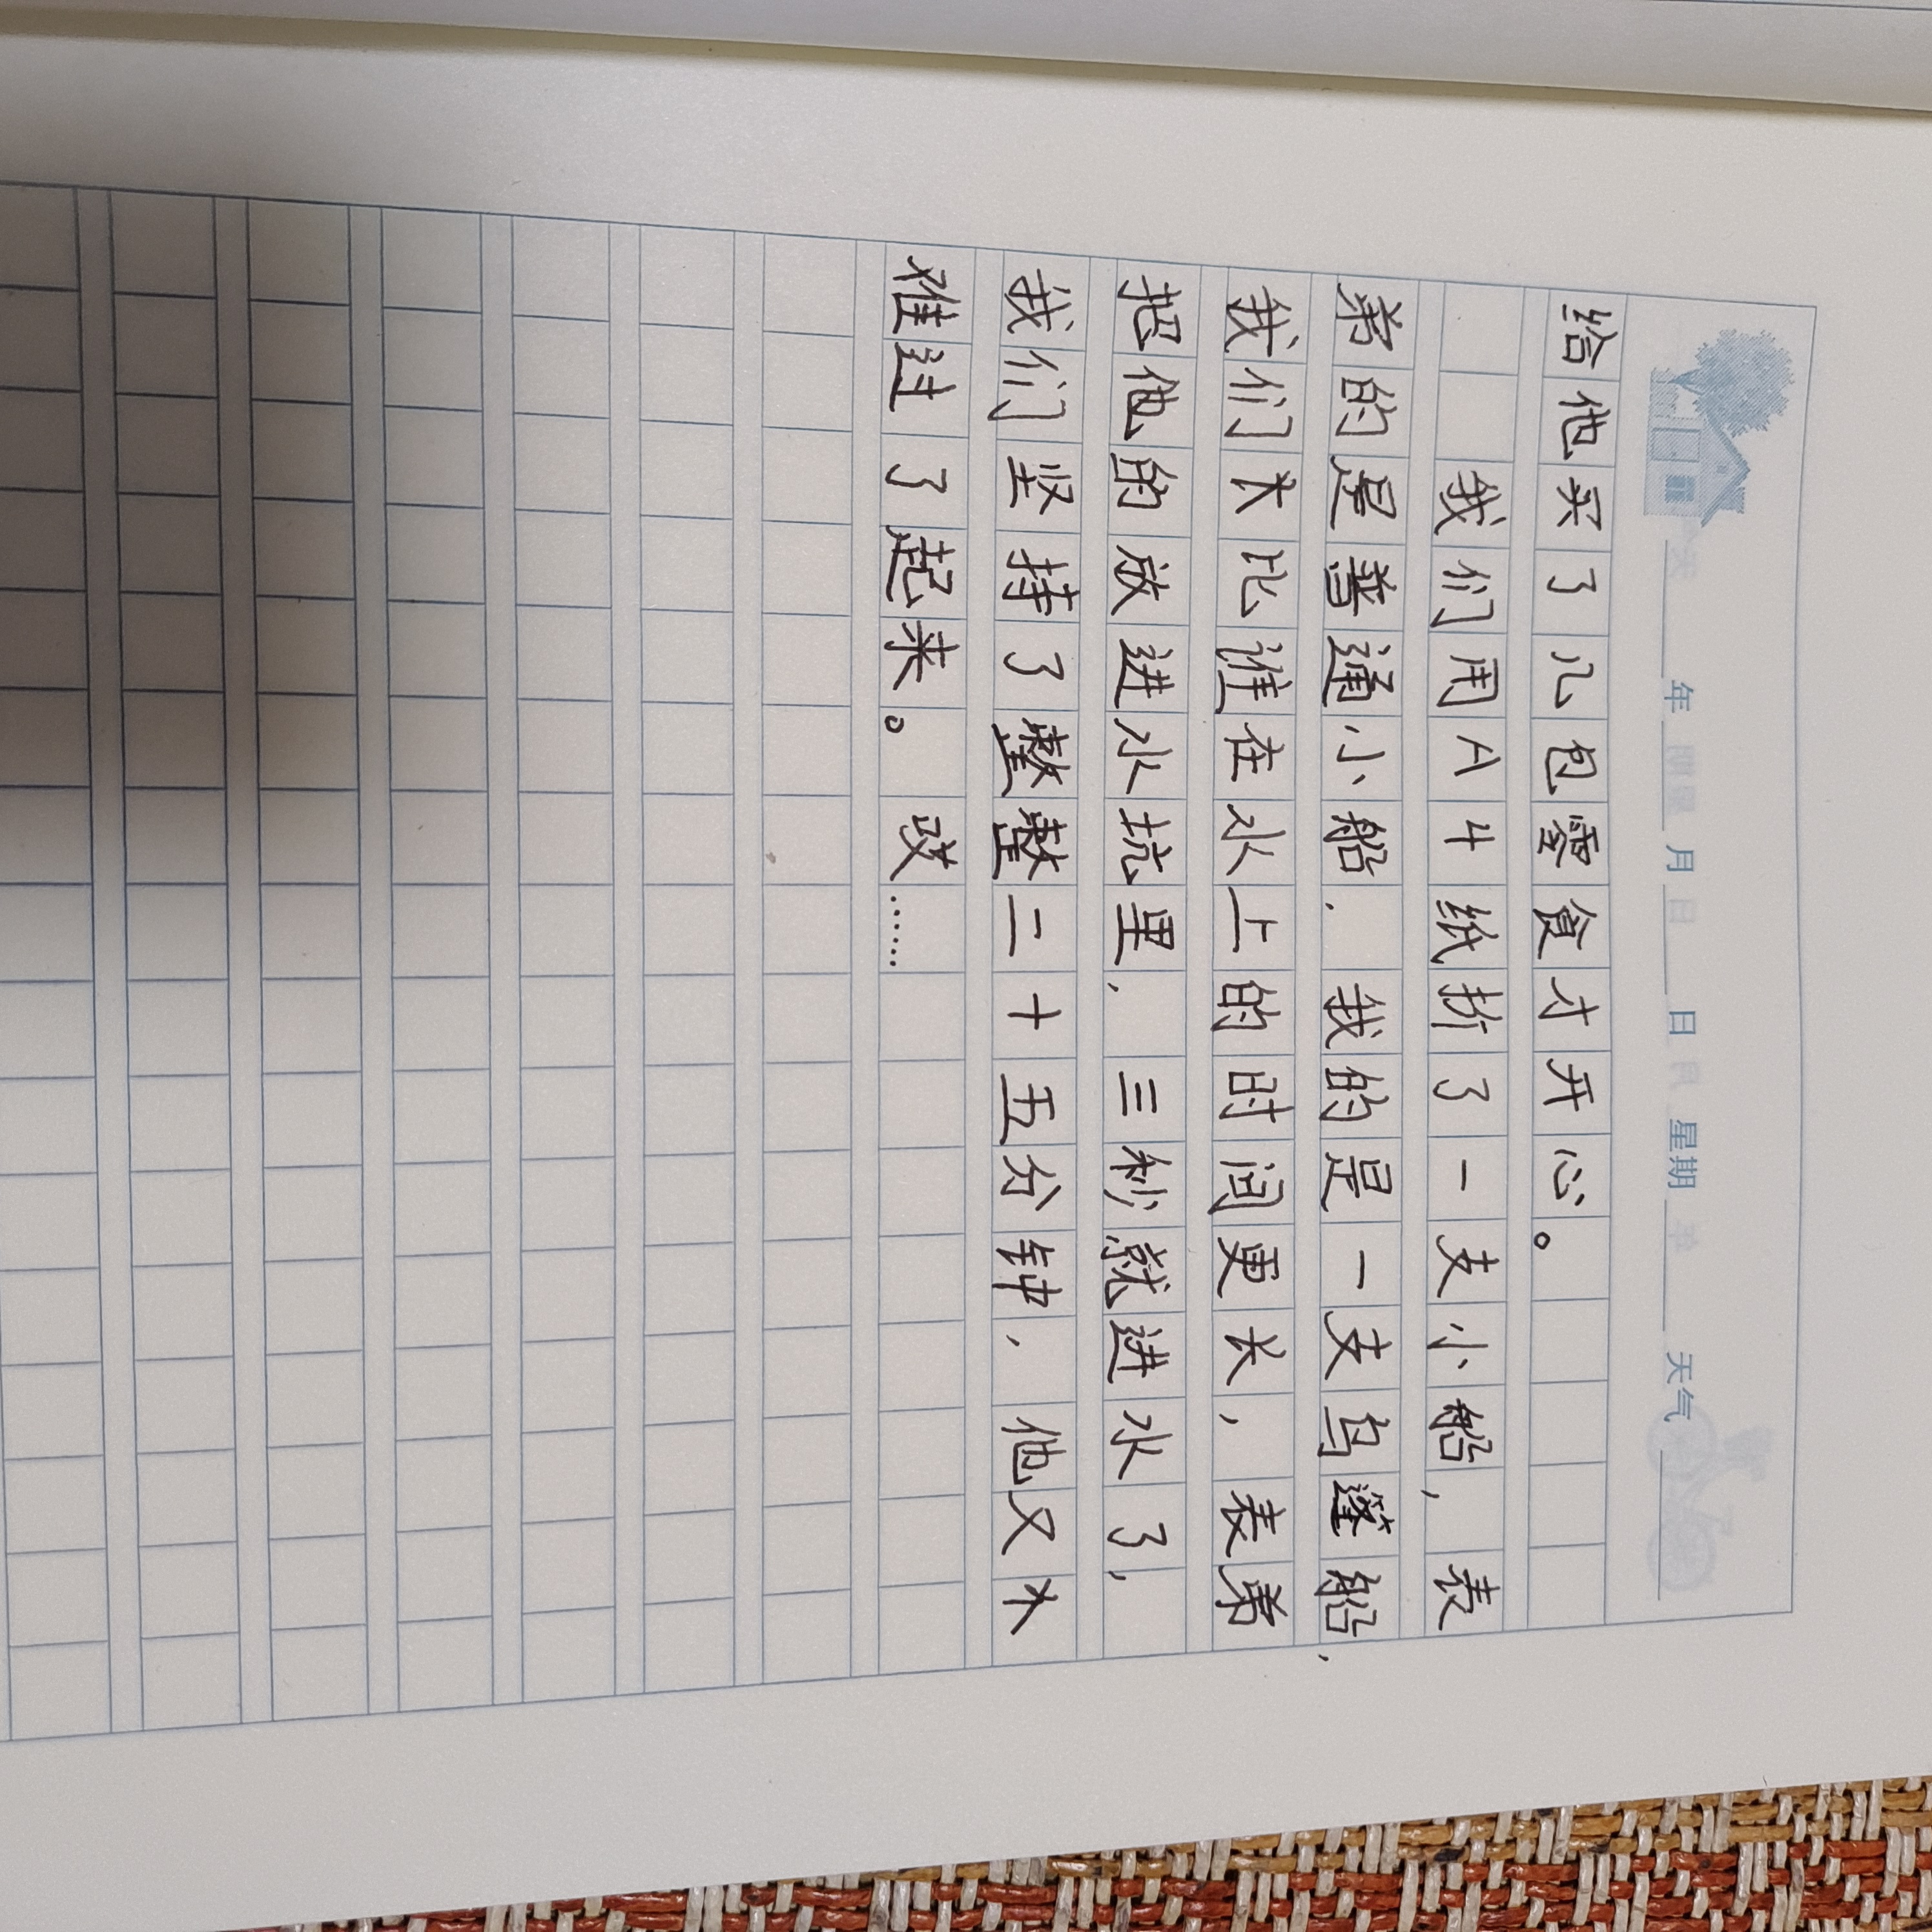 年 月 日 星期 天气
给他买了几包零食才开心。
我们用A4纸折了一支小船，表
弟的是普通小船，我的是一支乌篷船，
我们大比谁在水上的时间更长，表弟
把他的放进水坑里，三秒就进水了，
我们坚持了整整二十五分钟，他又大
难过了起来。唉……